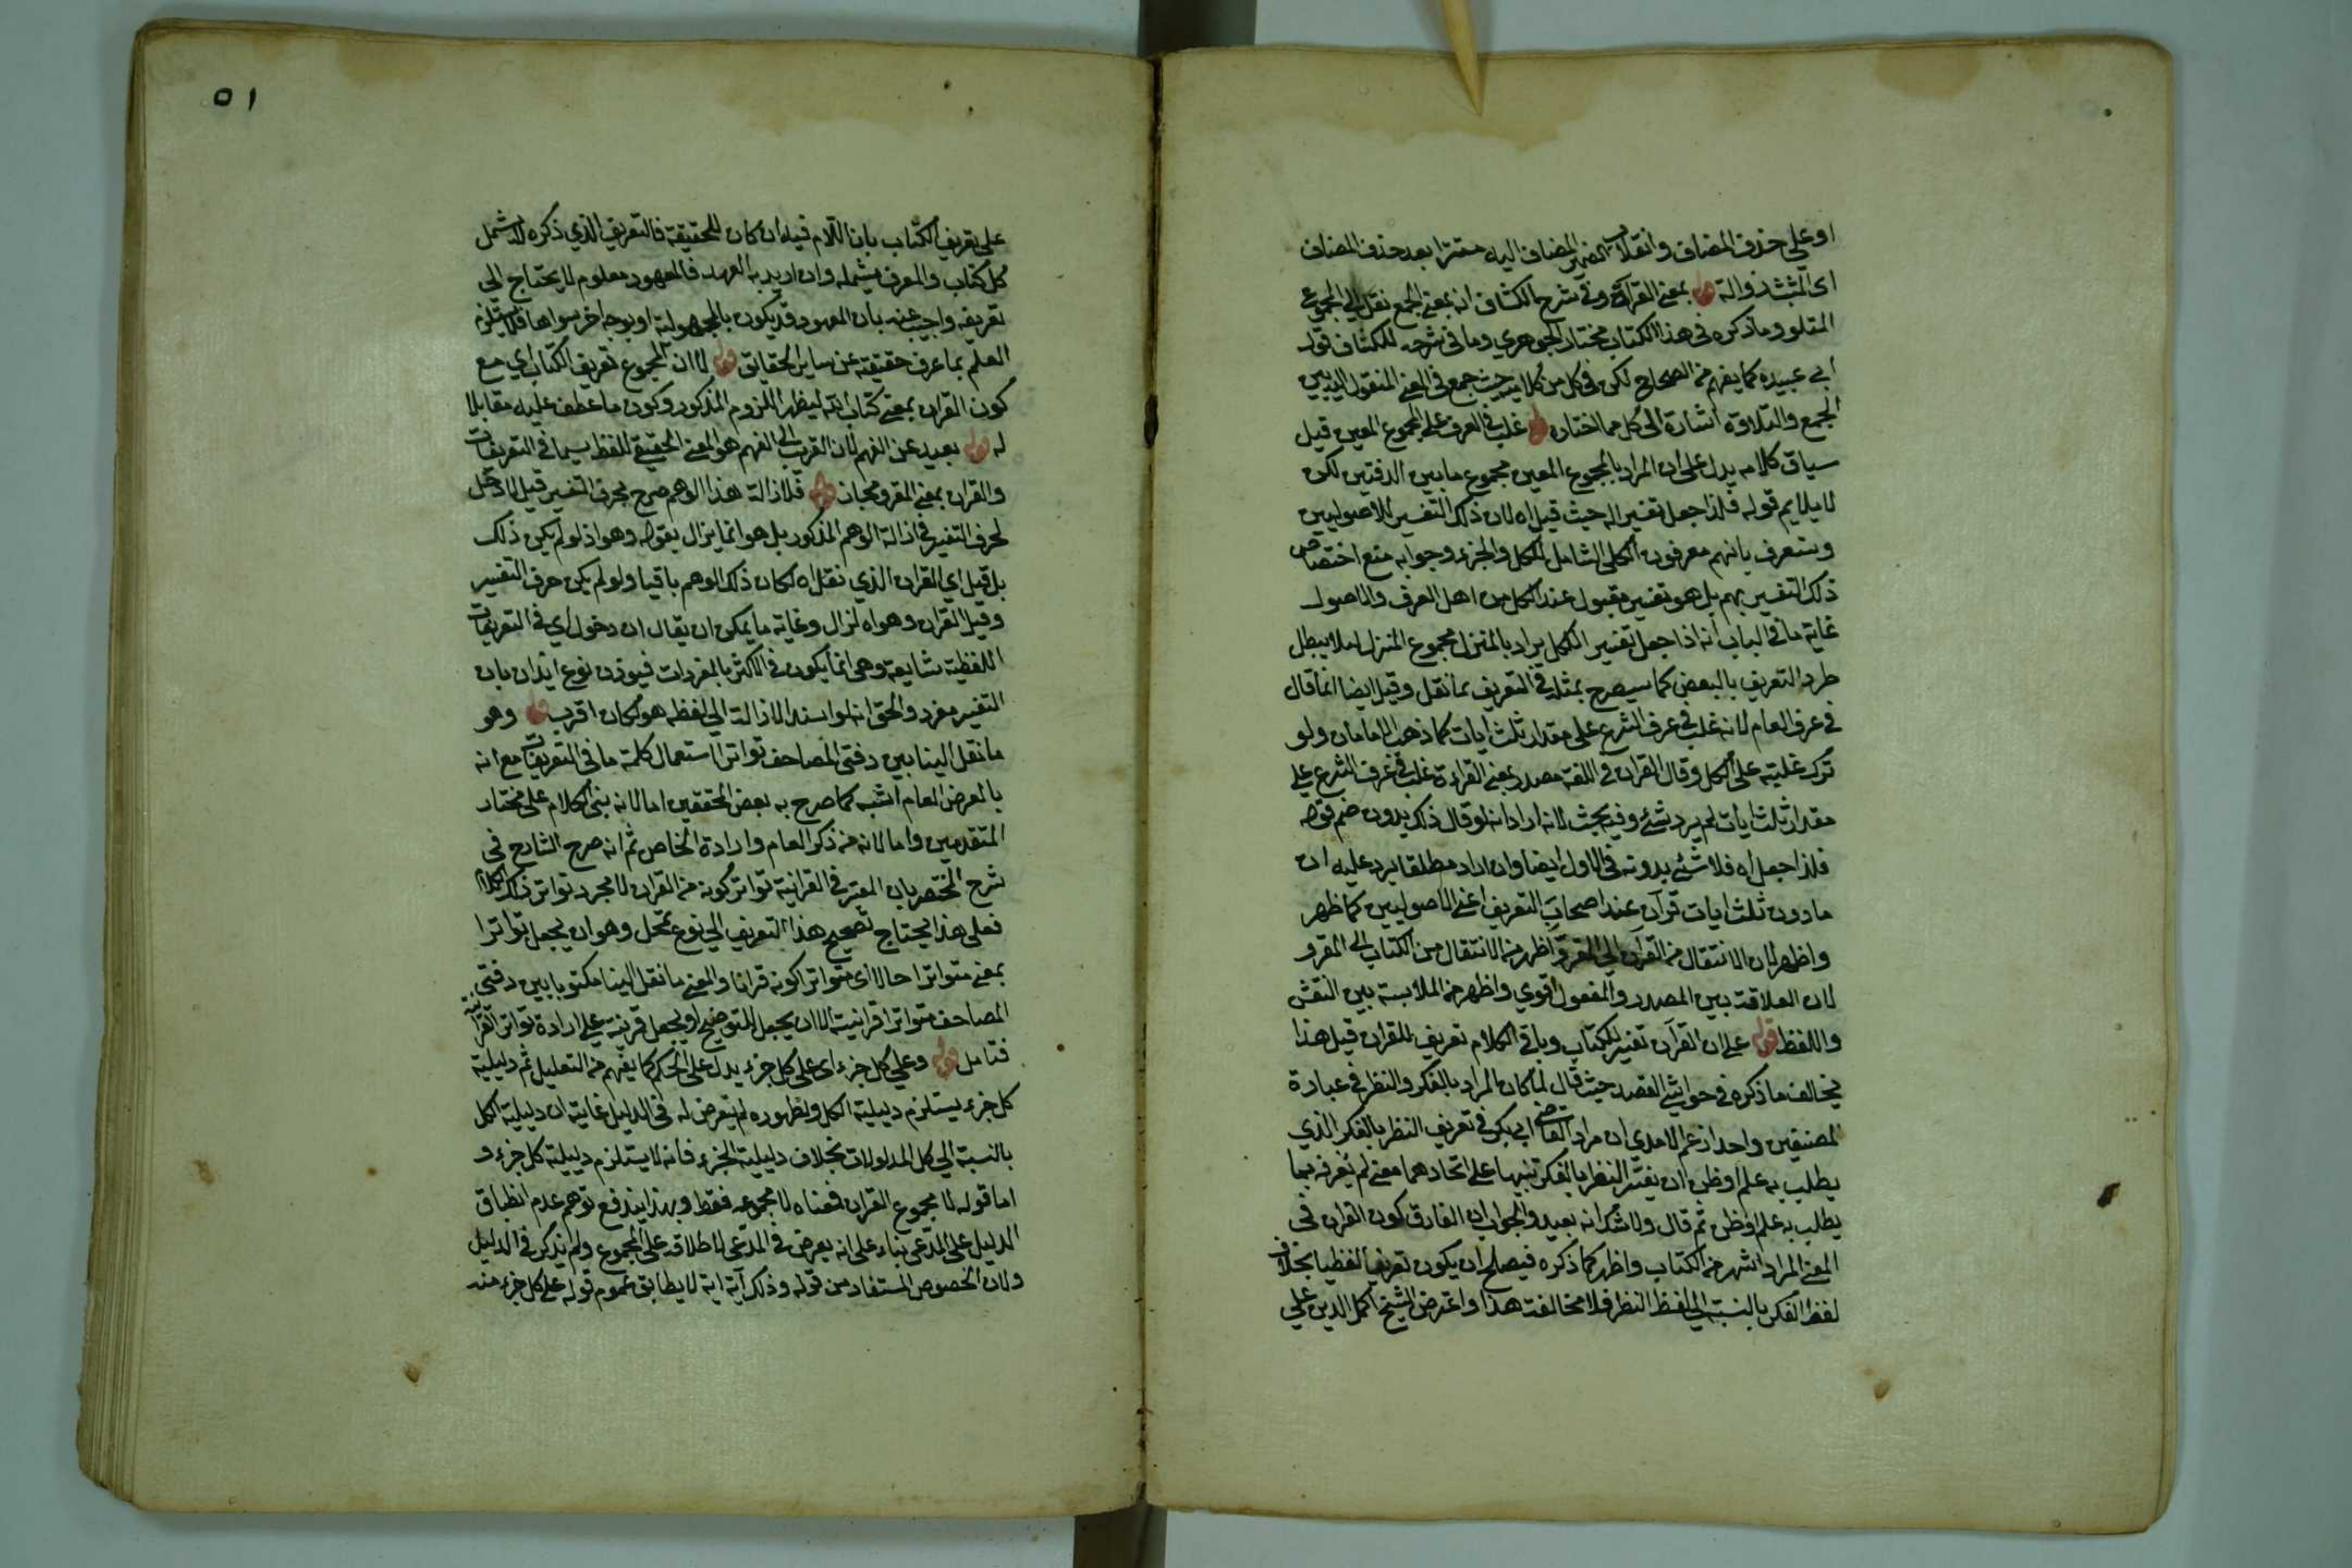 او علي حذف المضاف وانقلاب الضمير المضاف اليه مستترا بعد حذف المضاف
اى المثبت ذواله قوله بمعنى القراءة وفي شرح الكشاف انه بمعنى الجمع نقل الي المجموع
المتلو وما ذكره في هذا الكتاب مختار الجوهري وما في شرحه للكشاف قول
ابي عبيده كما يفهم من الصحاح لكن في كل من كلاميه حيث جمع في المعنى المنقول اليه بين
الجمع والتلاوة اشارة الى كل مما اختاره قوله غلب في العرف على المجموع المعين قيل
سياق كلامه يدل على ان المراد بالمجموع المعين مجموع ما بين الدفتين لكن
لا يلايم قوله فلذا جعل تفسيرا له حيث قيل اه لان ذلك التفسير للاصوليين
وستعرف بانهم معرفون الكلى الشامل للكل والجزء وجوابه منع اختصاص
ذلك التفسير بهم بل هو تفسير مقبول عند الكل من اهل العرف والاصول
غاية ما في الباب انه اذا جعل تفسير الكل يراد بالمنزل مجموع المنزل لئلا يبطل
طرد التعريف بالبعض كما سيصرح بمثله في التعريف بما نقل وقيل ايضا انما قال
في عرف العام لانه غلب في عرف الشرع على مقدار ثلث ايات كما ذهب الامامان ولو
ترك غلبته على الكل وقال القران في اللغة مصدر بمعنى القراءة غلب في عرف الشرع علي
مقدار ثلث ايات لم يرد شئ وفيه بحث لانه ان اراد انه لو قال ذلك بدون ضم قوله
فلذا جعل اه فلا شئ بدونه في الاول ايضا وان اراد مطلقا يرد عليه ان
ما دون ثلث ايات قرآن عند اصحاب التعريف اعنى الاصوليين كما ظهر
واظهر لان الانتقال من القران الي المقرو اظهر من الانتقال من الكتاب الى المقرو
لان العلاقة بين المصدر والمفعول اقوي واظهر من الملابسة بين النقش
واللفظ قوله على ان القرآن تفسير للكتاب وباقي الكلام تعريف للقران قيل هذا
يخالف ما ذكره في حواشي العضد حيث قال لما كان المراد بالفكر والنظر في عبارة
المصنفين واحدا زعم الامدي ان مراد القاضى ابي بكر في تعريف النظر بالفكر الذي
يطلب به علم او ظن ان يفسر النظر بالفكر تنبيها على اتحادهما معنى ثم يعرفه بما
يطلب به علم او ظن ثم قال ولا شك انه بعيد والجواب ان الفارق كون القران في
المعنى المراد اشهر من الكتاب واظهر كما ذكره فيصلح ان يكون تعريفا لفظيا بخلاف
لفظ الفكر بالنسبة الي لفظ النظر فلا مخالفة هذا واعترض الشيخ اكمل الدين علي
٥١
على تعريف الكتاب بان اللام فيه ان كان للحقيقة فالتعريف الذي ذكره لا يشمل
كل كتاب والمعرف يشمله وان اريد به العهد فالمعهود معلوم لا يحتاج الي
تعريفه واجيب عنه بان المعهود قد يكون بالمجهولية او بوجه اخر سواها فلا يستلزم
العلم بما عرف حقيقته عن ساير الحقايق قوله لا ان المجموع تعريف الكتاب اي مع
كون القران بمعنى كتاب الله ليظهر اللزوم المذكور وكون ما عطف عليه مقابلا
له قوله بعيد عن الفهم لان القريب الى الفهم هو المعنى الحقيقي للفظ سيما في التعريفات
والقران بمعنى المقرو مجاز قوله فلازالة هذا الوهم صرح بحرف التفسير قيل لا دخل
لحرف التفسير في ازالة الوهم المذكور بل هو انما يزال بقوله وهو اذ لو لم يكن ذلك
بل قيل اي القران الذي نقل اه لكان ذلك الوهم باقيا ولو لم يكن حرف التفسير
وقيل القران وهو اه لزال وغاية ما يمكن ان يقال ان دخول اي في التعريفات
اللفظية شايعة وهي انما يكون في الاكثر بالمفردات فيؤذن نوع ايذان بان
التفسير مفرد والحق انه لو اسند الازالة الي لفظه هو لكان اقرب قوله وهو
ما نقل الينا بين دفتى المصاحف تواترا استعمال كلمة ما في التعريفات مع انه
بالعرض العام اشبه كما صرح به بعض المحققين اما لانه بنى الكلام على مختار
المتقدمين واما لانه من ذكر العام وارادة الخاص ثم انه صرح الشارح في
شرح المختصر بان المعتبر في القرانية تواتر كونه من القران لا مجرد تواتر ذلك الكلام
فعلى هذا يحتاج تصحيح هذا التعريف الي نوع تمحل وهو ان يجعل تواترا
بمعنى متواترا حالا اى متواترا كونه قرانا والمعنى ما نقل الينا مكتوبا بين دفتى
المصاحف متواترا قرانيته الا ان يجعل للتوضيح او يجعل قرينة على ارادة تواتر القرانية
فتامل قوله وعلي كل جزء اى على كل جزء يدل على الحكم كما يفهم من التعليل ثم دليلية
كل جزء يستلزم دليلية الكل ولظهوره لم يتعرض له في الدليل غايته ان دليلية الكل
بالنسبة الي كل المدلولات بخلاف دليلية الجزء فانه لا يستلزم دليلية كل جزء و
اما قوله لا مجموع القران فمعناه لا مجموعه فقط وبهذا يندفع توهم عدم انطباق
الدليل على المدعى بناء على انه يعرض في المدعى لاطلاقه على المجموع ولم يذكر في الدليل
ولان الخصوص المستفاد من قوله وذلك آية اية لا يطابق عموم قوله على كل جزء منه